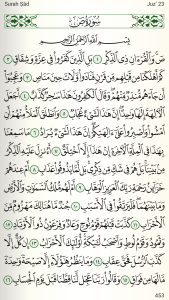 Surah Ṣād
Juz' 23
سُورَةُ صٓ
بِسْمِ ٱللَّهِ ٱلرَّحْمَٰنِ ٱلرَّحِيمِ
صٓ ۚ وَٱلْقُرْءَانِ ذِى ٱلذِّكْرِ ۝١ بَلِ ٱلَّذِينَ كَفَرُوا۟ فِى عِزَّةٍ وَشِقَاقٍ ۝٢
كَمْ أَهْلَكْنَا مِن قَبْلِهِم مِّن قَرْنٍ فَنَادَوا۟ وَّلَاتَ حِينَ مَنَاصٍ ۝٣ وَعَجِبُوٓا۟
أَن جَآءَهُم مُّنذِرٌ مِّنْهُمْ ۖ وَقَالَ ٱلْكَٰفِرُونَ هَٰذَا سَٰحِرٌ كَذَّابٌ ۝٤ أَجَعَلَ
ٱلْءَالِهَةَ إِلَٰهًا وَٰحِدًا ۖ إِنَّ هَٰذَا لَشَىْءٌ عُجَابٌ ۝٥ وَٱنطَلَقَ ٱلْمَلَأُ مِنْهُمْ أَنِ
ٱمْشُوا۟ وَٱصْبِرُوا۟ عَلَىٰٓ ءَالِهَتِكُمْ ۖ إِنَّ هَٰذَا لَشَىْءٌ يُرَادُ ۝٦ مَا سَمِعْنَا
بِهَٰذَا فِى ٱلْمِلَّةِ ٱلْءَاخِرَةِ إِنْ هَٰذَآ إِلَّا ٱخْتِلَٰقٌ ۝٧ أَءُنزِلَ عَلَيْهِ ٱلذِّكْرُ
مِنۢ بَيْنِنَا ۚ بَلْ هُمْ فِى شَكٍّ مِّن ذِكْرِى ۖ بَل لَّمَّا يَذُوقُوا۟ عَذَابِ ۝٨ أَمْ عِندَهُمْ
خَزَآئِنُ رَحْمَةِ رَبِّكَ ٱلْعَزِيزِ ٱلْوَهَّابِ ۝٩ أَمْ لَهُم مُّلْكُ ٱلسَّمَٰوَٰتِ وَٱلْأَرْضِ
وَمَا بَيْنَهُمَا ۖ فَلْيَرْتَقُوا۟ فِى ٱلْأَسْبَٰبِ ۝١٠ جُندٌ مَّا هُنَالِكَ مَهْزُومٌ مِّنَ
ٱلْأَحْزَابِ ۝١١ كَذَّبَتْ قَبْلَهُمْ قَوْمُ نُوحٍ وَعَادٌ وَفِرْعَوْنُ ذُو ٱلْأَوْتَادِ ۝١٢
وَثَمُودُ وَقَوْمُ لُوطٍ وَأَصْحَٰبُ لْـَٔيْكَةِ ۚ أُو۟لَٰٓئِكَ ٱلْأَحْزَابُ ۝١٣ إِن كُلٌّ إِلَّا
كَذَّبَ ٱلرُّسُلَ فَحَقَّ عِقَابِ ۝١٤ وَمَا يَنظُرُ هَٰٓؤُلَآءِ إِلَّا صَيْحَةً وَٰحِدَةً
مَّا لَهَا مِن فَوَاقٍ ۝١٥ وَقَالُوا۟ رَبَّنَا عَجِّل لَّنَا قِطَّنَا قَبْلَ يَوْمِ ٱلْحِسَابِ ۝١٦
453